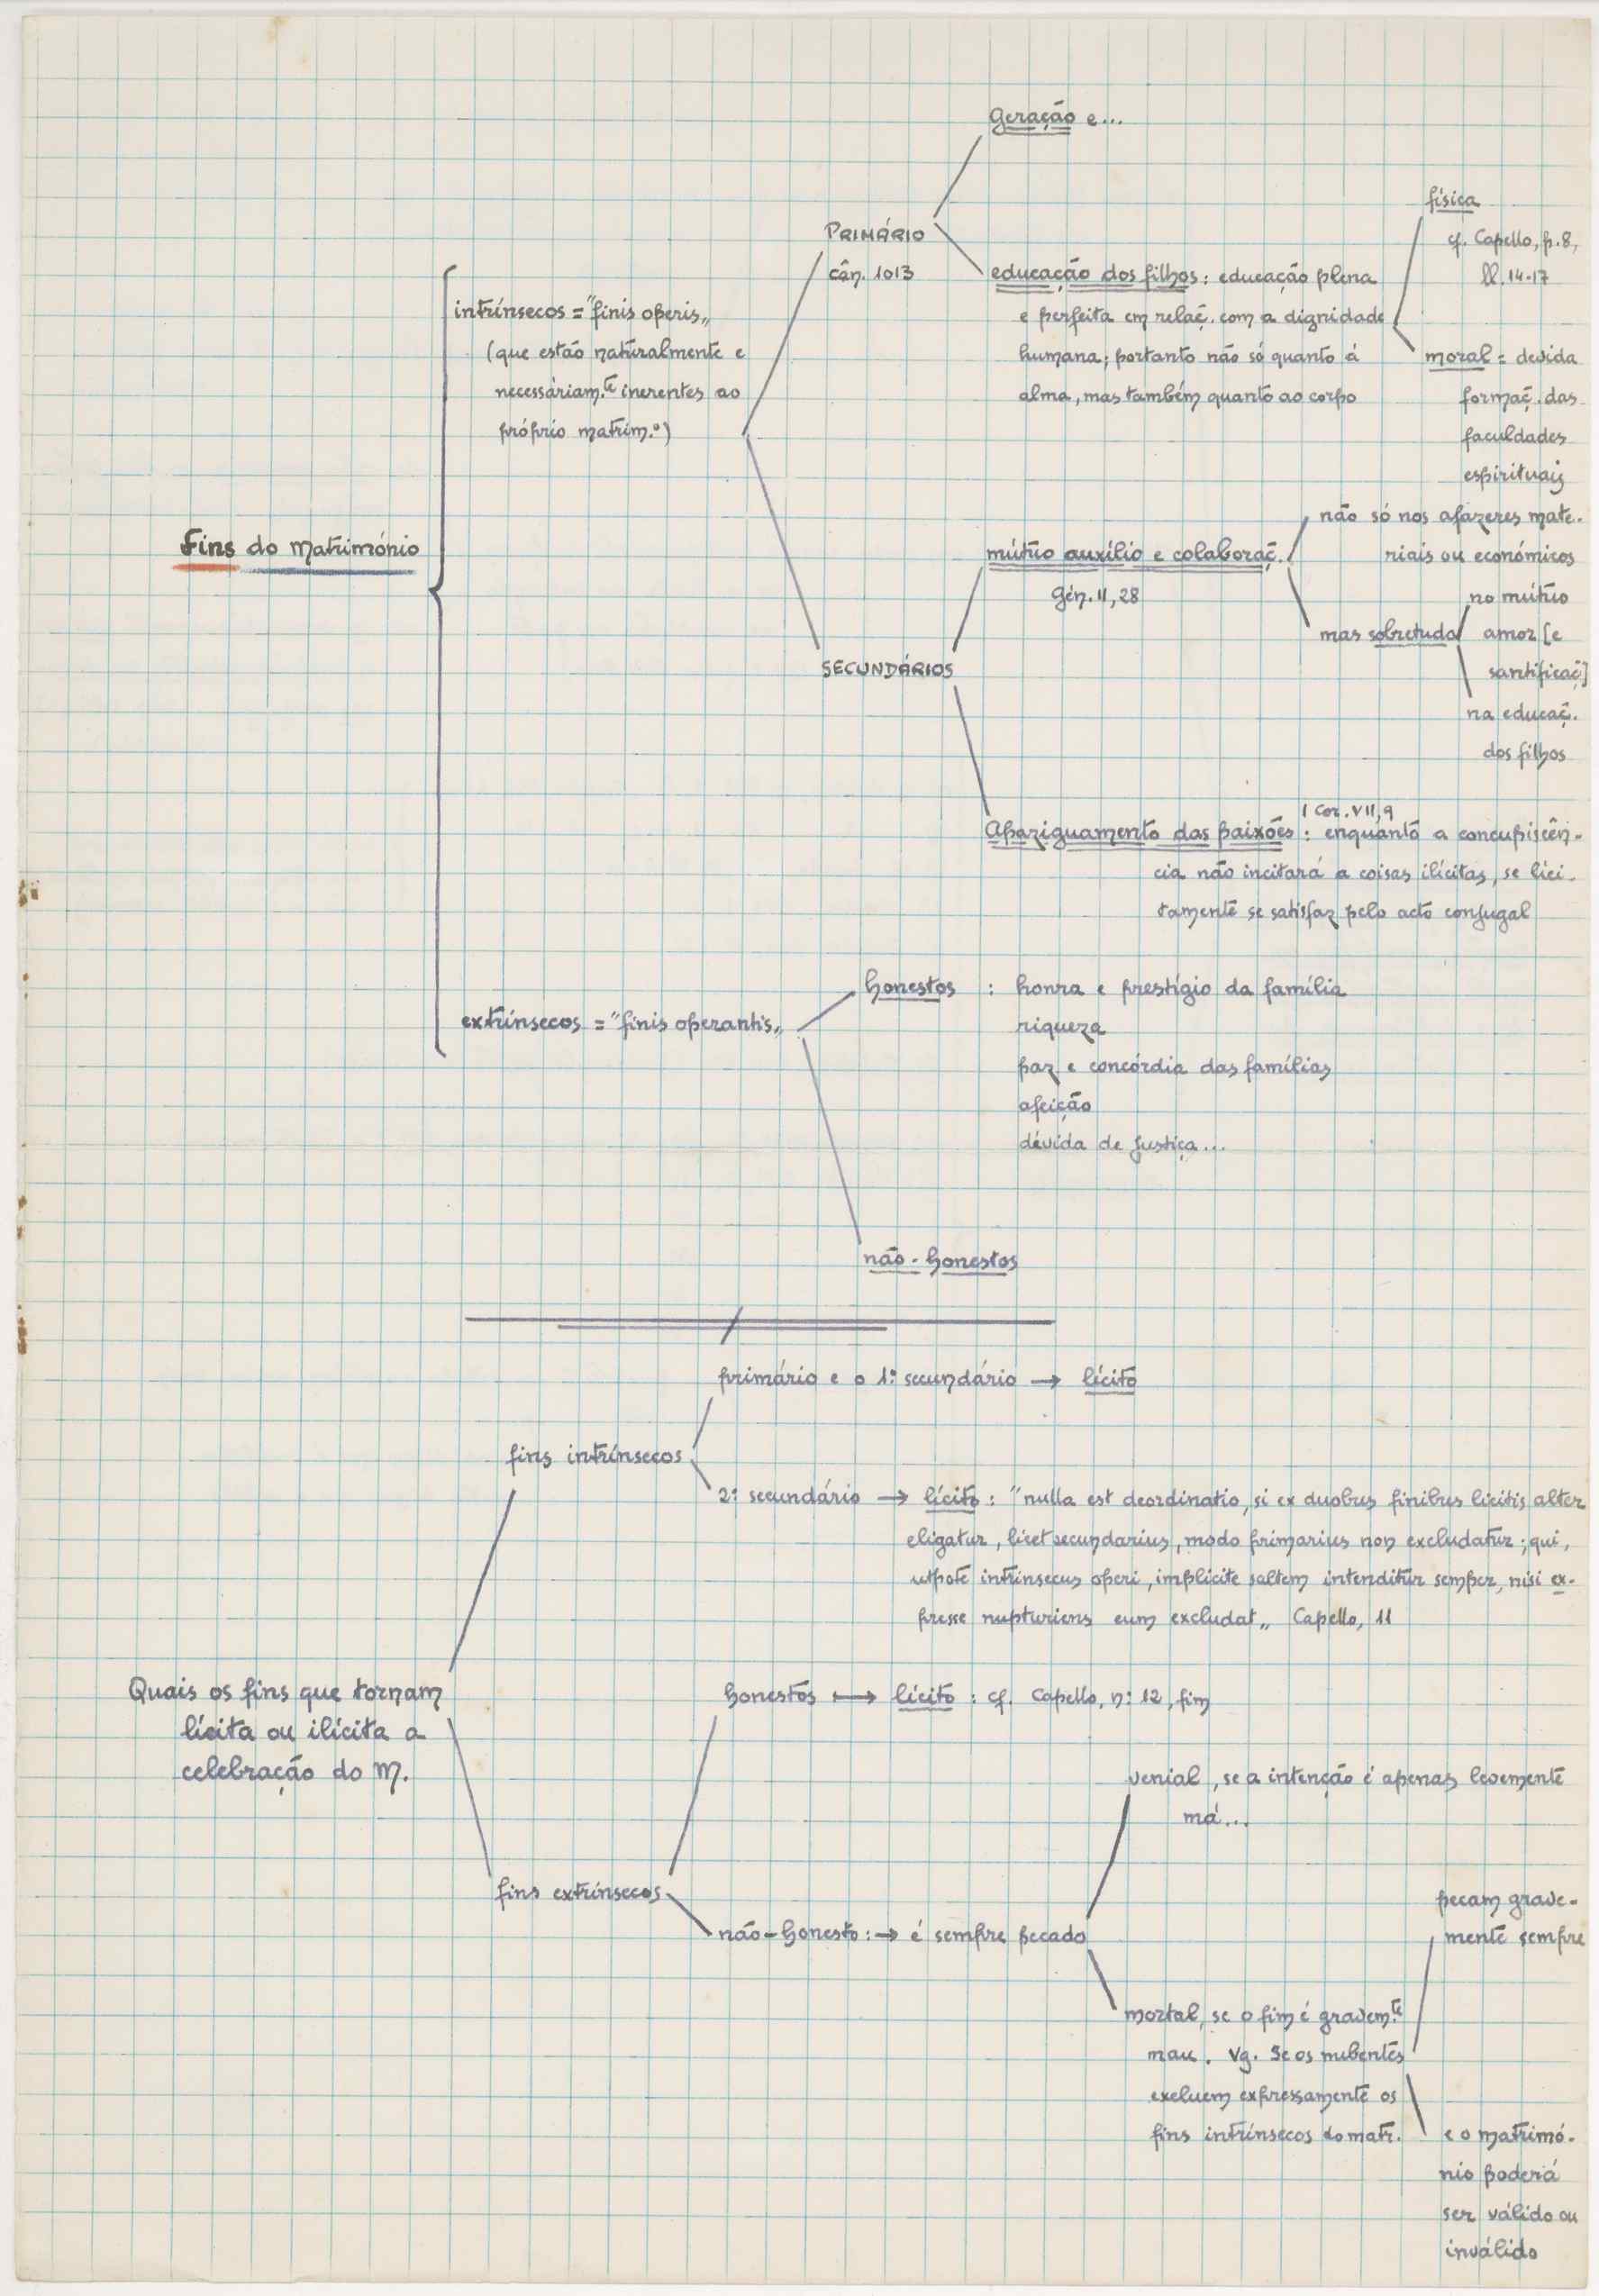 Geração e...
física
cf. Capello, p. 8,
ll. 14-17
PRIMÁRIO
cân. 1013
educação dos filhos: educação plena
e perfeita em relaç. com a dignidade
humana; portanto não só quanto á
alma, mas também quanto ao corpo
moral = devida
formaç. das
faculdades
espirituais
intrínsecos = "finis operis„
(que estão naturalmente e
necessáriam.te inerentes ao
próprio matrim.o)
Fins do matrimónio
mútuo auxílio e colaboraç.
Gén. II, 28
não só nos afazeres mate-
riais ou económicos
mas sobretudo
no mútuo
amor [e
santificaç]
na educaç.
dos filhos
SECUNDÁRIOS
I Cor. VII, 9
Apaziguamento das paixões: enquanto a concupiscên-
cia não incitará a coisas ilícitas, se lici-
tamente se satisfaz pelo acto conjugal
extrínsecos = "finis operantis„
honestos : honra e prestígio da família
riqueza
paz e concórdia das famílias
afeição
dévida de justiça...
não-honestos
primário e o 1º secundário → lícito
fins intrínsecos
2º secundário → lícito: "nulla est deordinatio, si ex duobus finibus licitis alter
eligatur, licet secundarius, modo primarius non excludatur; qui,
utpote intrinsecus operi, implicite saltem intenditur semper, nisi ex-
presse nupturiens eum excludat„ Capello, 11
Quais os fins que tornam
lícita ou ilícita a
celebração do M.
honestos → lícito : cf. Capello, nº 12, fim
fins extrínsecos
não-honesto: → é sempre pecado
venial, se a intenção é apenas levemente
má...
mortal, se o fim é gravem.te
mau. Vg. Se os nubentes
excluem expressamente os
fins intrínsecos do matr.
pecam grave-
mente sempre
e o matrimó-
nio poderá
ser válido ou
inválido